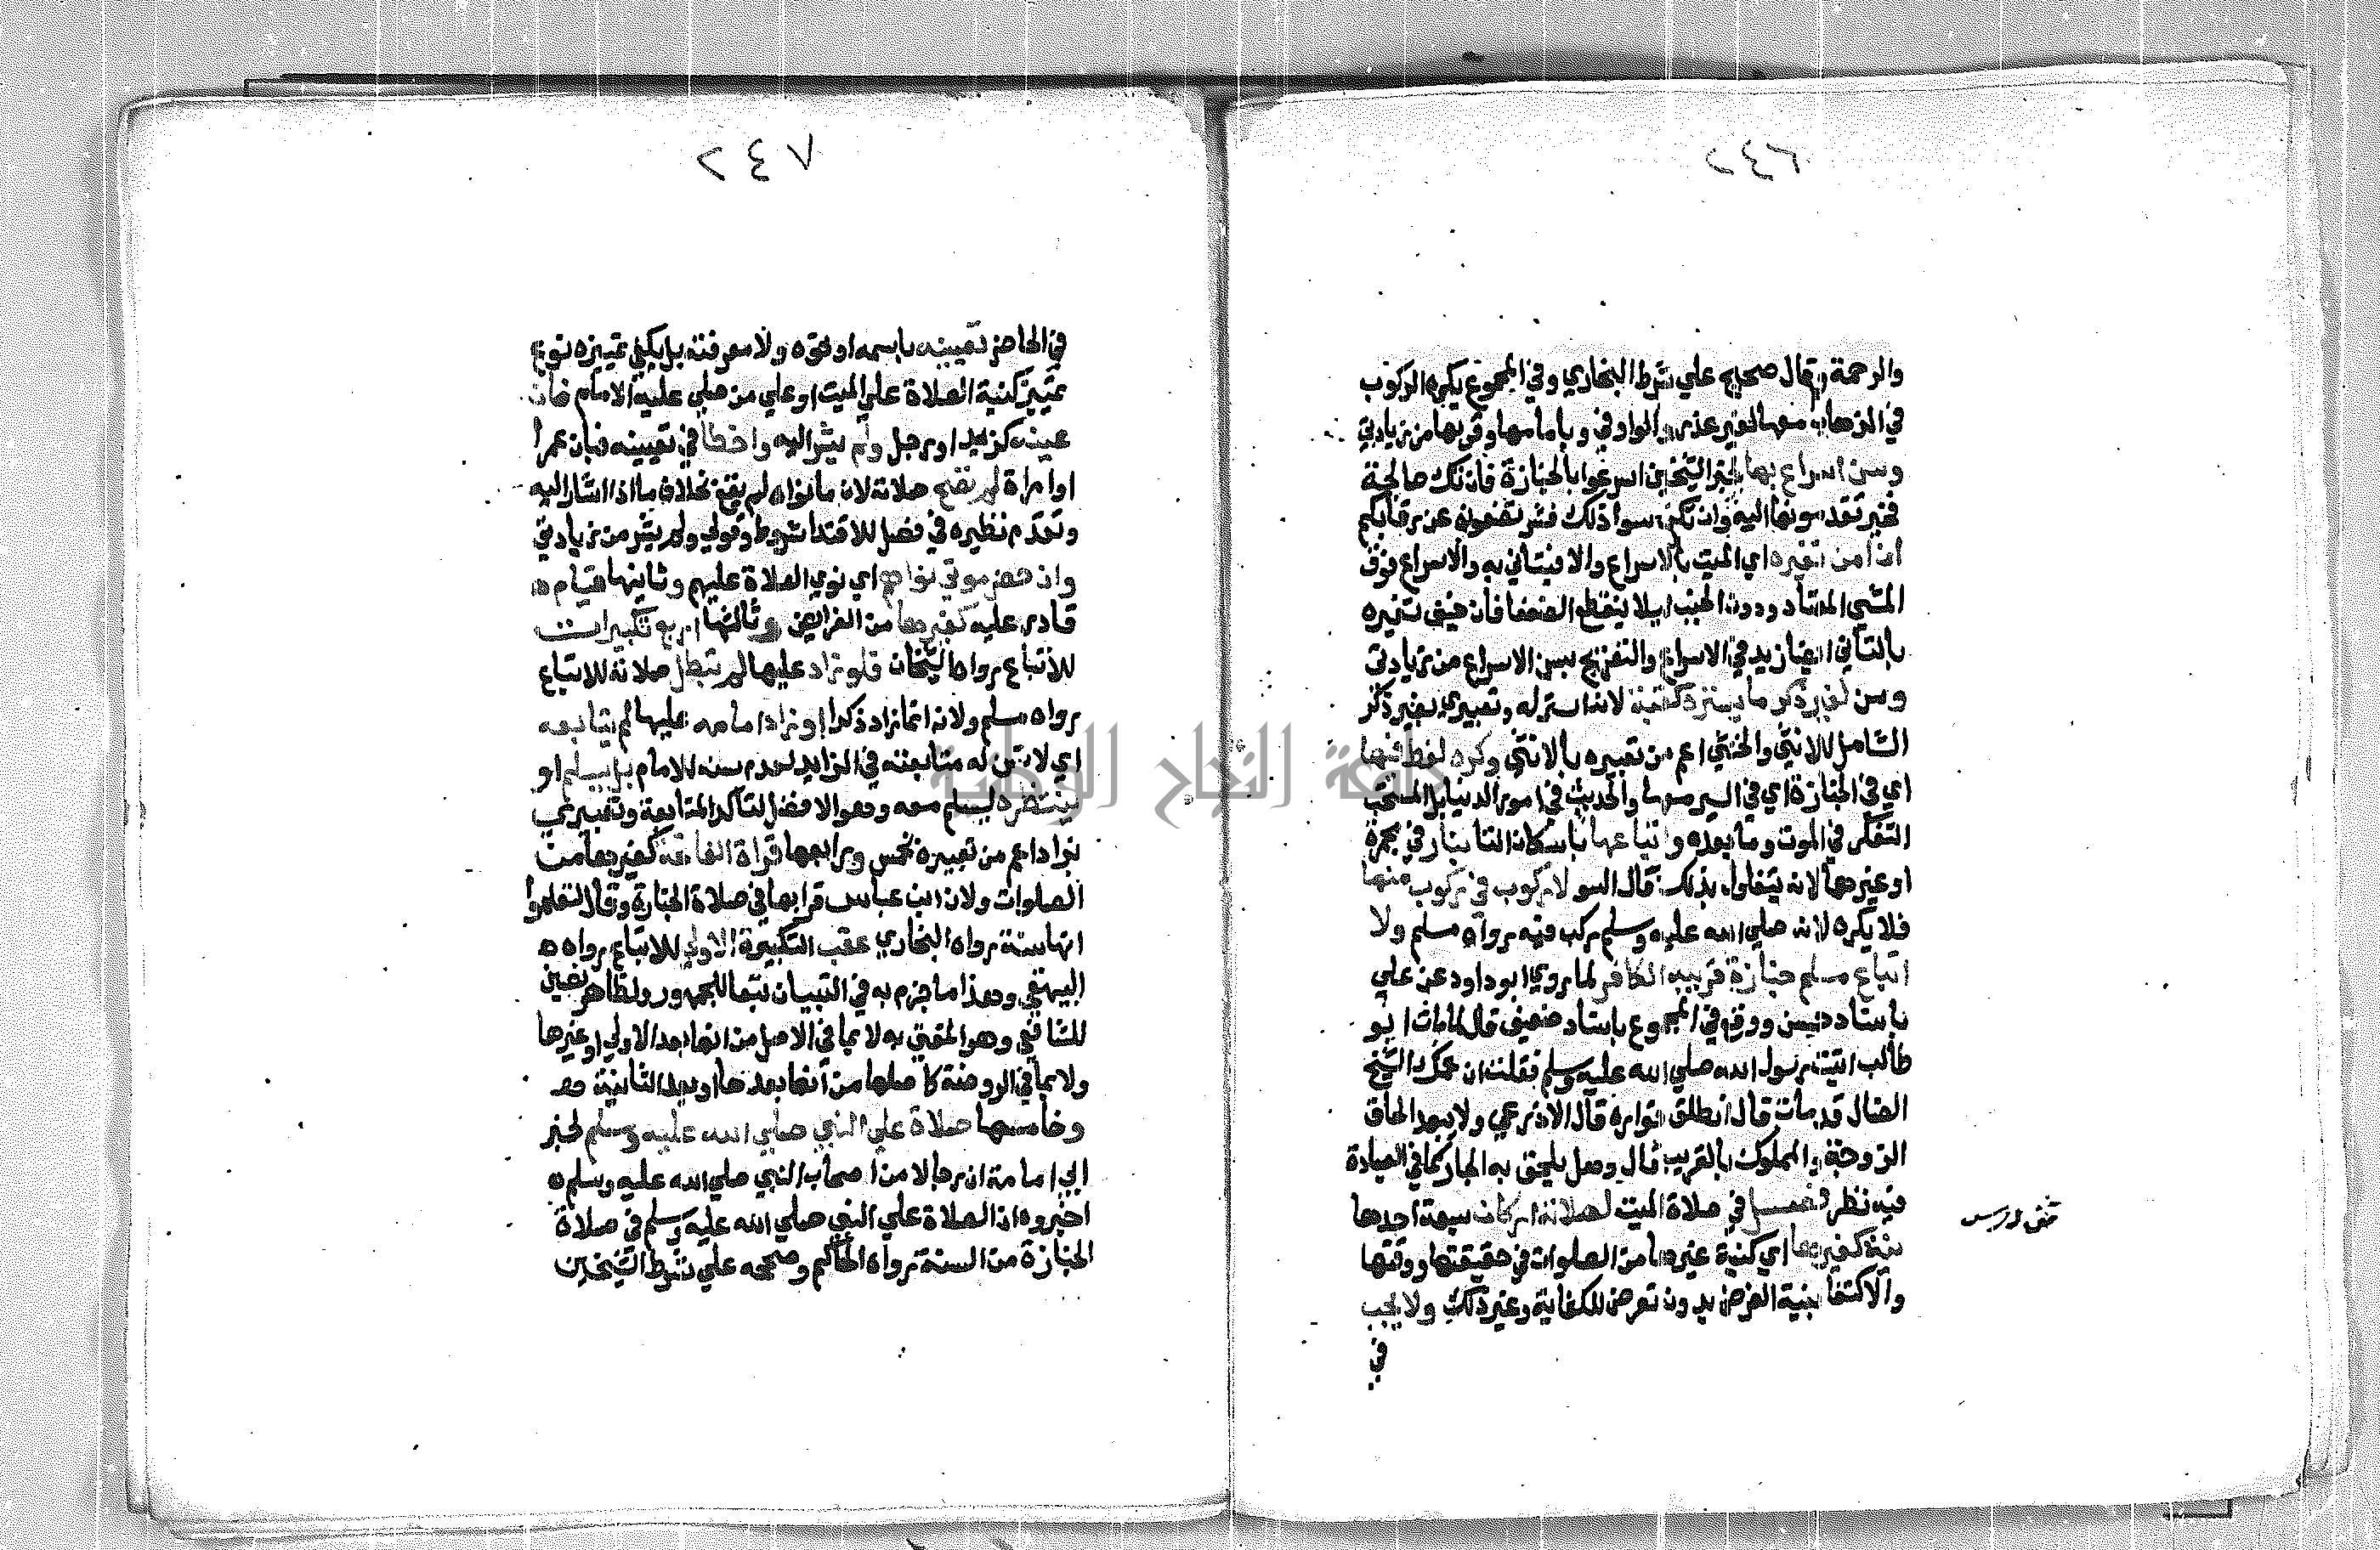 ٢٤٦
والرحمة وقال صحيح علي شرط البخاري وفي المجموع يكره الركوب
في الذهاب معها لغير عذر والواو في وبامامها وقربها من زيادتي
وسن اسراع بها لخبر الشيخين اسرعوا بالجنازة فان تك صالحة
فخير تقدمونها اليه وان تك سوا ذلك فشر تضعونه عن رقابكم
ان امن تغيره اي الميت بالاسراع والا فيتاني به والاسراع فوق
المشي المعتاد ودون الخبب ليلا ينقطع الضعفا فان خيف تغيره
بالتاني ايضا زيد في الاسراع والتصريح بسن الاسراع من زيادتي
وسن لغير ذكر ما يستره كقبة لانه استر له وتعبيري بغير ذكر
الشامل للانثي والخنثي اعم من تعبيره بالانثي وكره لغط فيها
اي في الجنازة اي في السير معها والحديث في امور الدنيا بل المستحب
التفكر في الموت وما بعده واتباعها باسكان التا بنار في مجمرة
او غيرها لانه يتفاول بذلك فال السو لا ركوب في رجوع منها
فلا يكره لانه صلي الله عليه وسلم ركب فيه رواه مسلم ولا
اتباع مسلم جنازة قريبه الكافر لما روي ابو داود عن علي
باسناد حسن ووقع في المجموع باسناد ضعيف قال لما مات ابو
طالب اتيت رسول الله صلي الله عليه وسلم فقلت ان عمك الشيخ
الضال قد مات قال انطلق فواره قال الاذرعي ولا يبعد الحاق
الزوجة والمملوك بالقريب قال وهل يلحق به الجار كما في العيادة
فيه نظر فصل في صلاة الميت لصلاته اركان سبعة احدها
نية كغيرها اي كنية غيرها من الصلوات في حقيقتها ووقتها
والاكتفا بنية الفرض بدون تعرض للكفاية وغير ذلك ولا يجب
في
٢٤٧
في الحاضر تعيينه باسمه او نحوه ولا معرفته بل يكفي تمييزه نوع
تمييز كنية الصلاة علي الميت او علي من صلي عليه الامام فان
عينه كزيد او رجل ولم يشر اليه واخطا في تعيينه فبان عمرا
او امراة لم تصح صلاته لان ما نواه لم يقع بخلاف ما اذا اشار اليه
وتقدم نظيره في فصل للاقتدا شروط وقولي ولم يشر من زيادتي
وان حضر موتي نواهم اي نوي الصلاة عليهم وثانيها قيام
قادر عليه كغيرها من الفرايض وثالثها اربع تكبيرات
للاتباع رواه الشيخان فلو زاد عليها لم تبطل صلاته للاتباع
رواه مسلم ولانه انما زاد ذكرا او زاد امامه عليها لم يتابعه
اي لا تسن له متابعته في الزايد لعدم سنه للامام بل يسلم او
ينتظره ليسلم معه وهو الافضل لتاكد المتابعة وتعبيري
بزاد اعم من تعبيره بخمس ورابعها قراة الفاتحة كغيرها من
الصلوات ولان ابن عباس قرا بها في صلاة الجنازة وقال لتعلموا
انها سنة رواه البخاري عقب التكبيرة الاولي للاتباع رواه
البيهقي وهذا ما جزم به في التبيان تبعا للجمهور ولظاهر نصين
للشافعي وهو المفتي به لا بما في الاصل من انها بعد الاولي او غيرها
ولا بما في الروضة كاصلها من انها بعدها او بعد الثانية
وخامسها صلاة علي النبي صلي الله عليه وسلم لخبر
ابي امامة ان رجالا من اصحاب النبي صلي الله عليه وسلم
اخبروه ان الصلاة علي النبي صلي الله عليه وسلم في صلاة
الجنازة من السنة رواه الحاكم وصححه علي شرط الشيخين
جامعة النجاح الوطنية